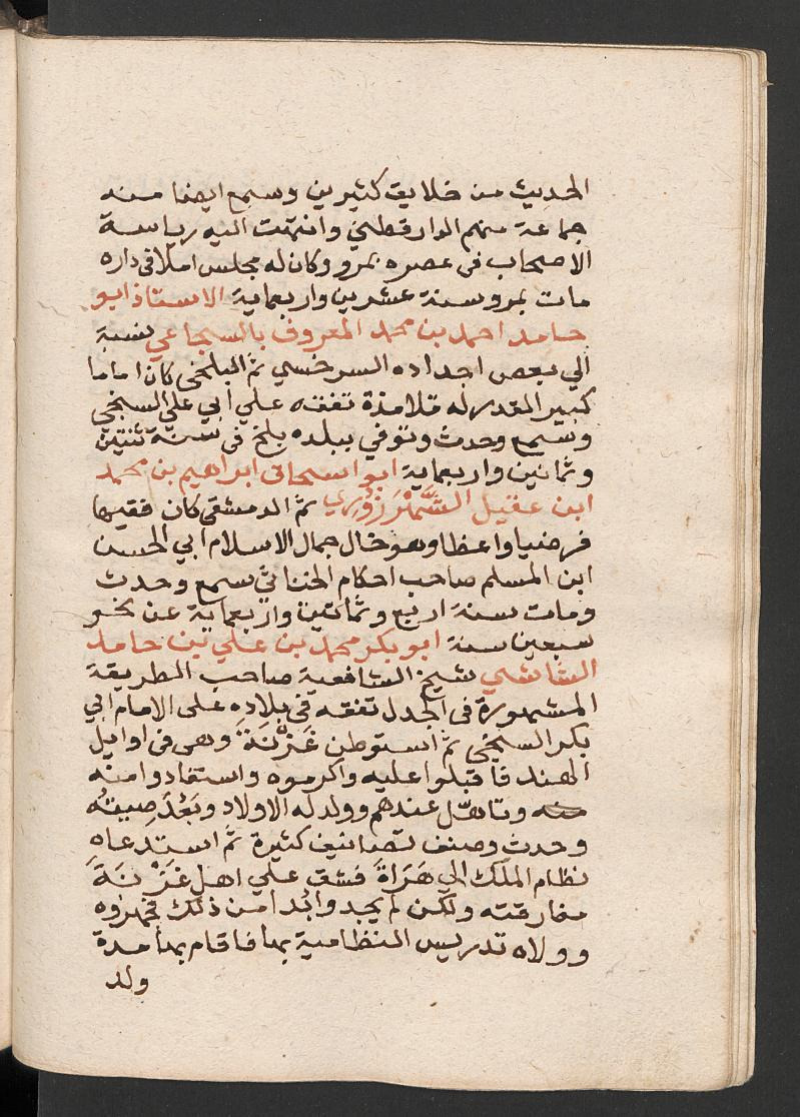 الحديث من خلايق كثيرين وسمع ايضا منه
جماعة منهم الدارقطني وانتهت اليه رياسة
الاصحاب في عصره بمرو وكان له مجلس املا في داره
مات بمرو سنة عشرين واربعماية الاستاذ ابو
حامد احمد بن محمد المعروف بالشجاعي نسبة
الي بعض اجداده السرخسي ثم البلخي كان اماما
كبير القدر له تلامذة تفقه علي ابي علي السنجي
وسمع وحدث وتوفي ببلده بلخ في سنة ثنتين
وثمانين واربعماية ابو اسحاق ابراهيم بن محمد
ابن عقيل الشَّهْرَزُوري ثم الدمشقي كان فقيها
فرضيا واعظا وهو خال جمال الاسلام ابي الحسن
ابن المسلم صاحب احكام الخناثي سمع وحدث
ومات سنة اربع وثمانين واربعماية عن نحو
سبعين سنة ابو بكر محمد بن علي بن حامد
الشاشي شيخ الشافعية صاحب الطريقة
المشهورة في الجدل تفقه في بلاده على الامام ابي
بكر السنجي ثم استوطن غَزْنَةَ وهي في اوايل
الهند فاقبلوا عليه واكرموه واستفادوا منه
وتاهل عندهم وولد له الاولاد وبَعُدَ صِيتُه
وحدث وصنف تصانيف كثيرة ثم استدعاه
نظام الملك الي هَرَاةَ فشق علي اهل غَزْنَةَ
مفارقته ولكن لم يجدوا بُدا من ذلك فجهزوه
وولاه تدريس النظامية بها فاقام بها مدة
ولد